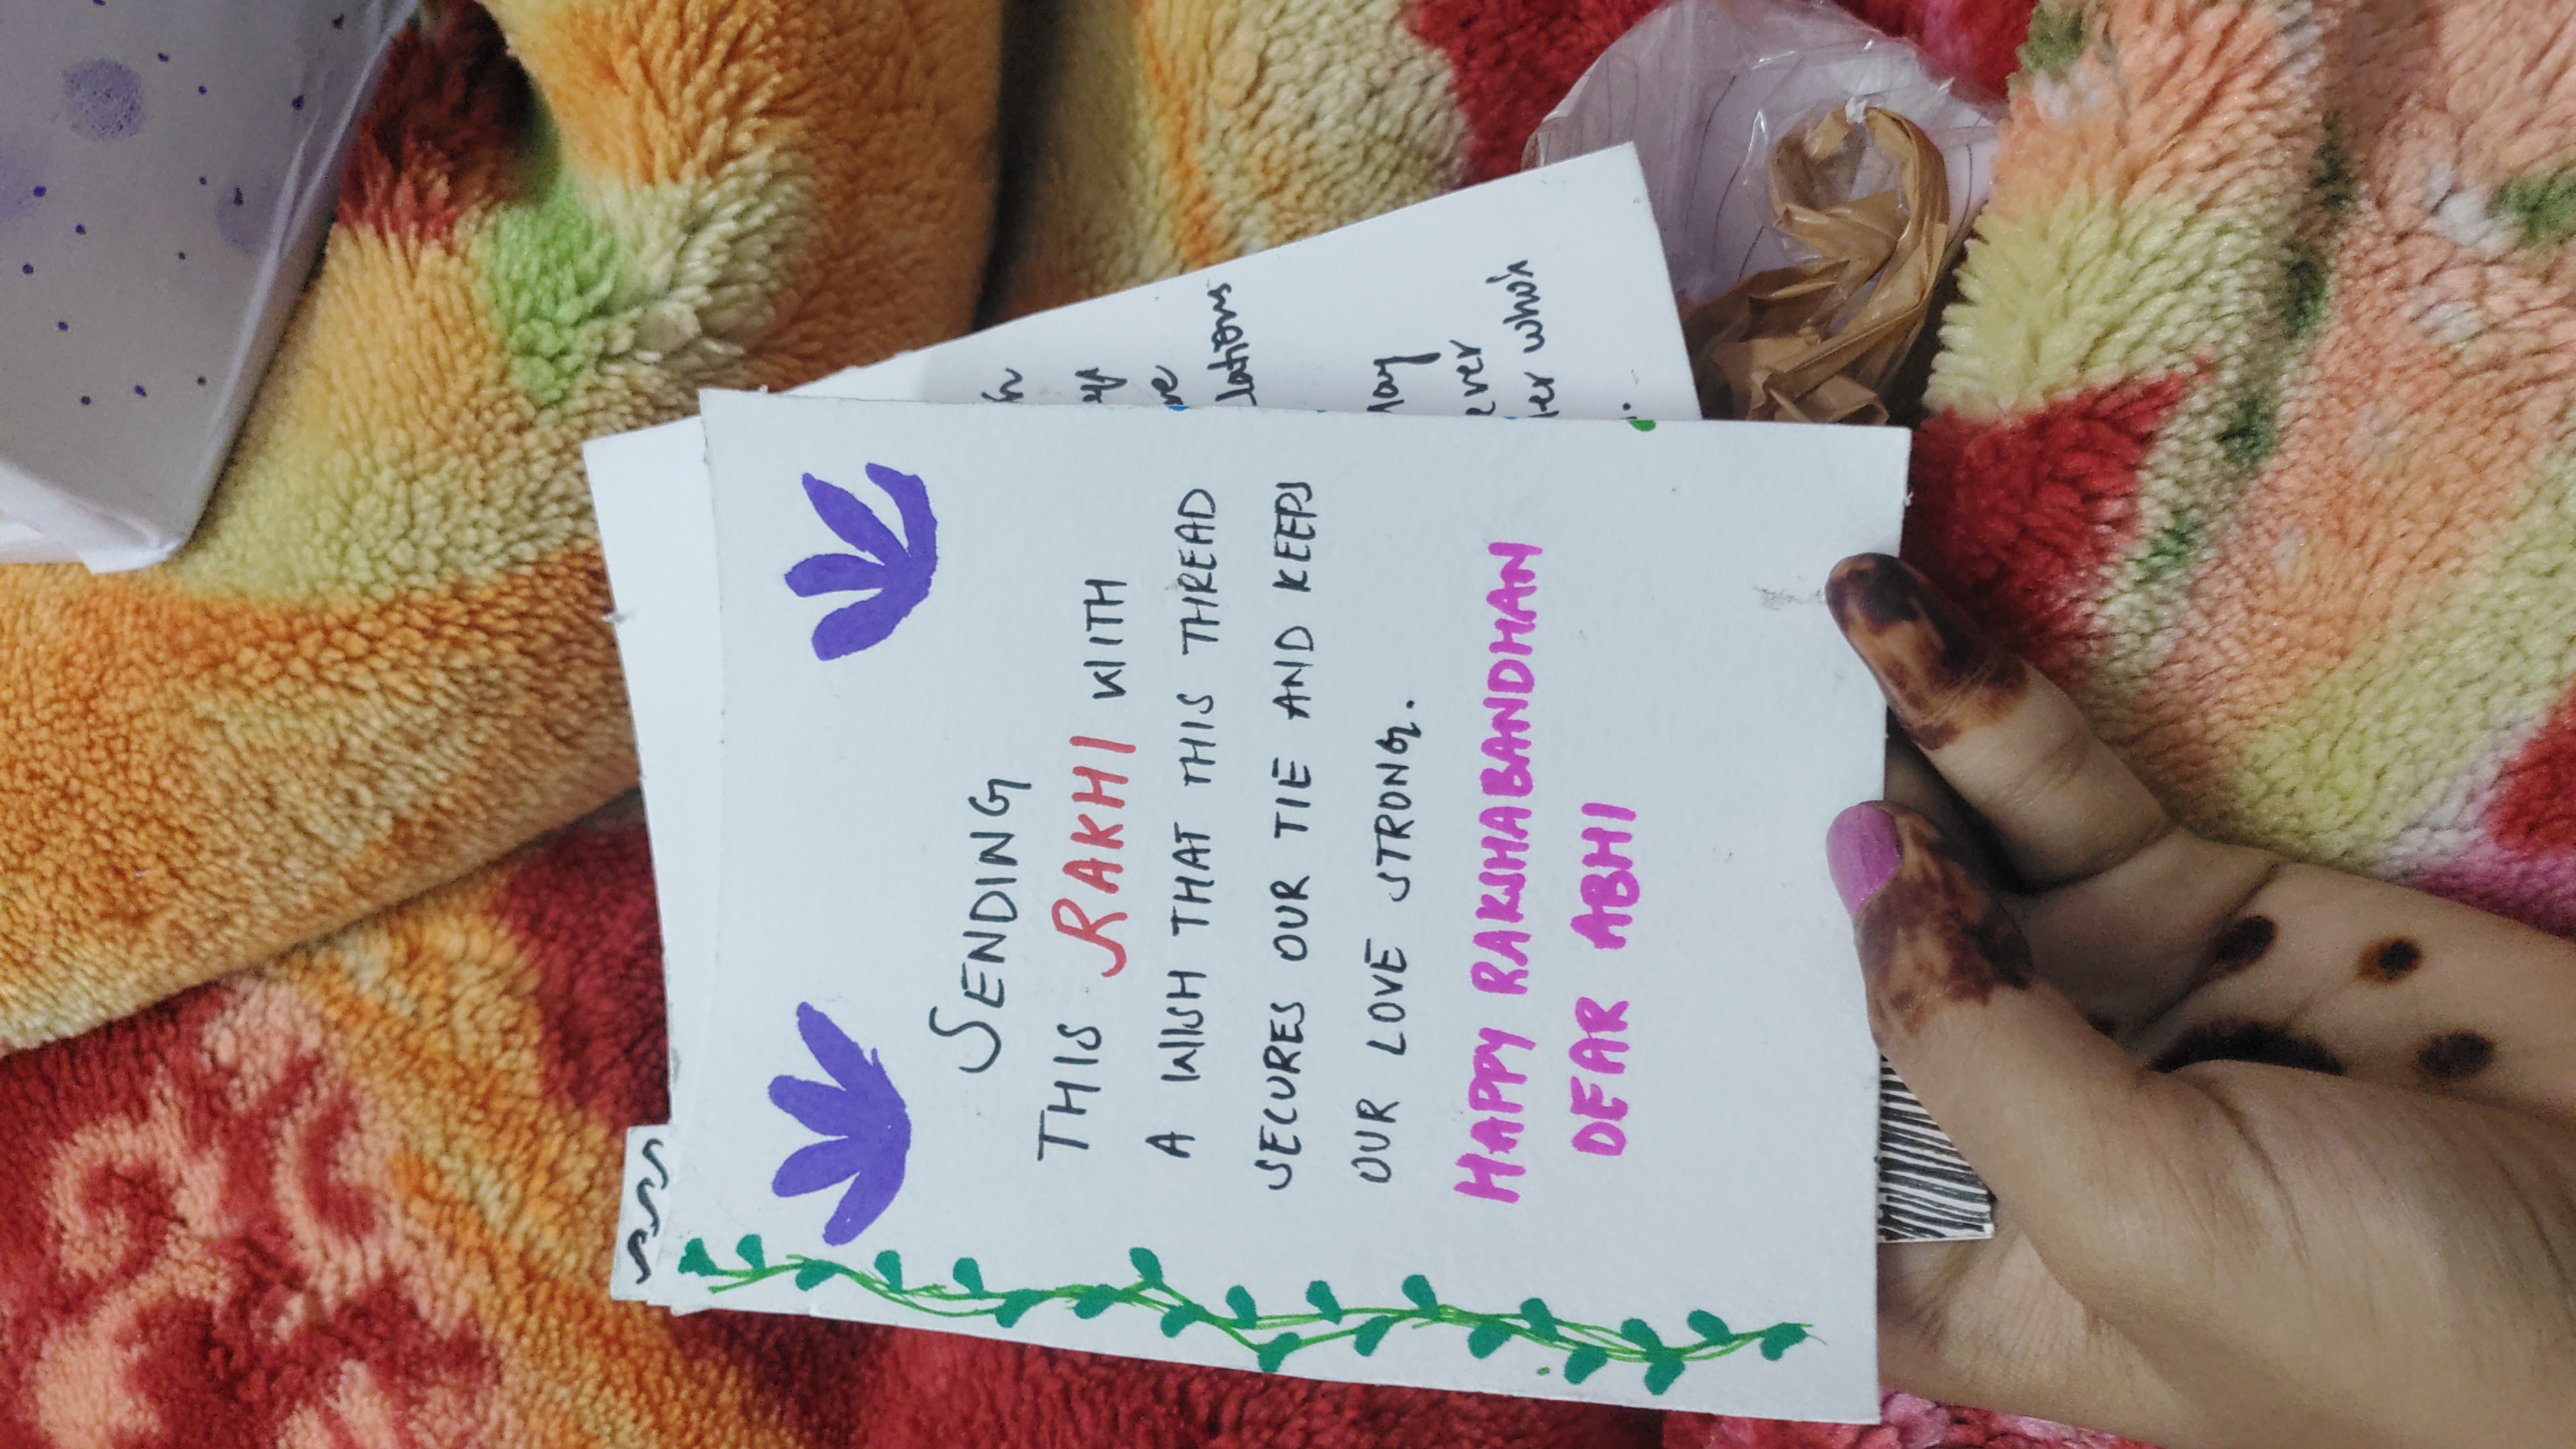 SENDING
THIS RAKHI WITH
A WISH THAT THIS THREAD
SECURES OUR TIE AND KEEPS
OUR LOVE STRONG.
HAPPY RAKSHABANDHAN
DEAR ABHI
who's